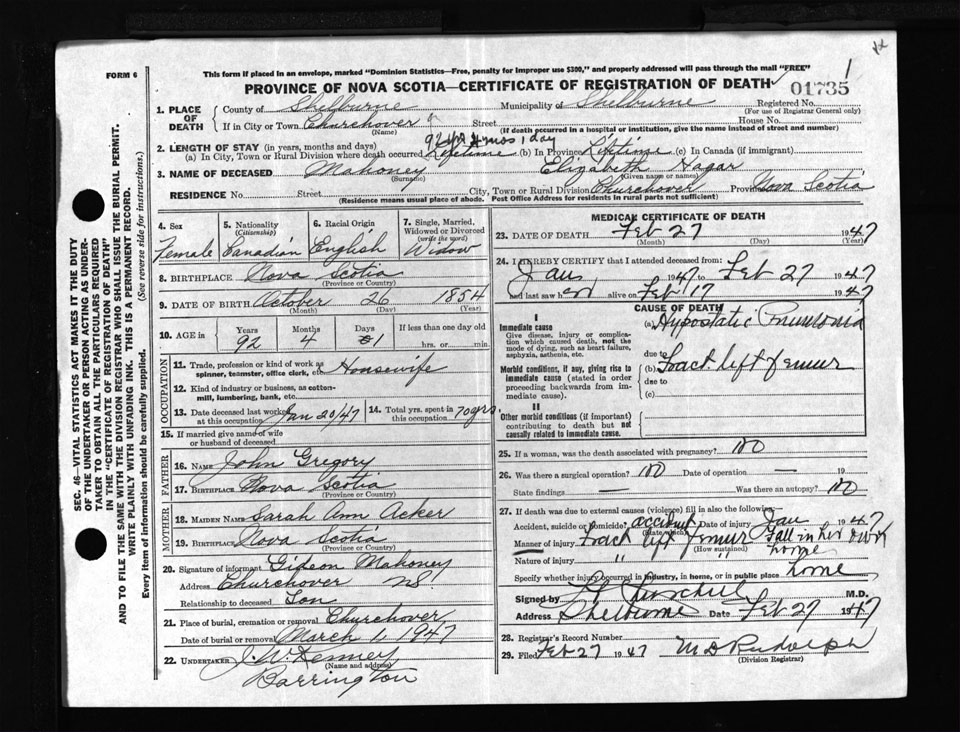 FORM 6
This form if placed in an envelope, marked "Dominion Statistics—Free, penalty for improper use $300," and properly addressed will pass through the mail "FREE"
PROVINCE OF NOVA SCOTIA—CERTIFICATE OF REGISTRATION OF DEATH
1
01735
1. PLACE OF DEATH County of Shelburne Municipality of Shelburne Registered No.
(For use of Registrar General only)
If in City or Town Churchover Street House No.
(Name) (If death occurred in a hospital or institution, give the name instead of street and number)
92 yrs 4 mos 1 day
2. LENGTH OF STAY (in years, months and days)
(a) In City, Town or Rural Division where death occurred Lifetime (b) In Province Lifetime (c) In Canada (if immigrant)
3. NAME OF DECEASED Mahoney Elizabeth Hagar
(Surname) (Given name or names)
RESIDENCE No. Street City, Town or Rural Division Churchover Province Nova Scotia
(Residence means usual place of abode. Post Office Address for residents in rural parts not sufficient)
4. Sex Female
5. Nationality (Citizenship) Canadian
6. Racial Origin English
7. Single, Married, Widowed or Divorced (write the word) Widow
8. BIRTHPLACE Nova Scotia
(Province or Country)
9. DATE OF BIRTH October 26 1854
(Month) (Day) (Year)
10. AGE Years 92 Months 4 Days 1 If less than one day old hrs. or min.
OCCUPATION
11. Trade, profession or kind of work as spinner, teamster, office clerk, etc. Housewife
12. Kind of industry or business, as cotton-mill, lumbering, bank, etc.
13. Date deceased last worked at this occupation Jan 20/47 14. Total yrs. spent in this occupation 70 yrs.
15. If married give name of wife or husband of deceased
FATHER
16. NAME John Gregory
17. BIRTHPLACE Nova Scotia
(Province or Country)
MOTHER
18. MAIDEN NAME Sarah Ann Acker
19. BIRTHPLACE Nova Scotia
(Province or Country)
20. Signature of informant Gideon Mahoney
Address Churchover NS
Relationship to deceased Son
21. Place of burial, cremation or removal Churchover
Date of burial or removal March 1, 1947
22. UNDERTAKER J. W. Kenney
(Name and address)
Barrington
MEDICAL CERTIFICATE OF DEATH
23. DATE OF DEATH Feb 27 1947
(Month) (Day) (Year)
24. I HEREBY CERTIFY that I attended deceased from:
Jan 1947 to Feb 27 1947
and last saw her alive on Feb 17 1947
CAUSE OF DEATH
I
Immediate cause
Give disease, injury or complication which caused death, not the mode of dying, such as heart failure, asphyxia, asthenia, etc.
(a) Hypostatic Pneumonia
due to
Morbid conditions, if any, giving rise to immediate cause (stated in order proceeding backwards from immediate cause).
(b) Fract. left femur
due to
(c)
II
Other morbid conditions (if important) contributing to death but not causally related to immediate cause.
25. If a woman, was the death associated with pregnancy? No
26. Was there a surgical operation? No Date of operation — 19
State findings — Was there an autopsy? No
27. If death was due to external causes (violence) fill in also the following:
Accident, suicide or homicide? accident Date of injury Jan 1947
(State which)
Manner of injury Fract left femur Fall in her own home
(How sustained)
Nature of injury " "
Specify whether injury occurred in industry, in home, or in public place home
Signed by M.D.
Address Shelburne Date Feb 27 1947
28. Registrar's Record Number
29. Filed Feb 27 1947 M D Rudolph
(Division Registrar)
SEC. 46—VITAL STATISTICS ACT MAKES IT THE DUTY
OF THE UNDERTAKER OR PERSON ACTING AS UNDERTAKER TO OBTAIN ALL THE PARTICULARS REQUIRED
IN THE "CERTIFICATE OF REGISTRATION OF DEATH"
AND TO FILE THE SAME WITH THE DIVISION REGISTRAR WHO SHALL ISSUE THE BURIAL PERMIT.
WRITE PLAINLY WITH UNFADING INK. THIS IS A PERMANENT RECORD.
Every item of information should be carefully supplied. (See reverse side for instructions.)